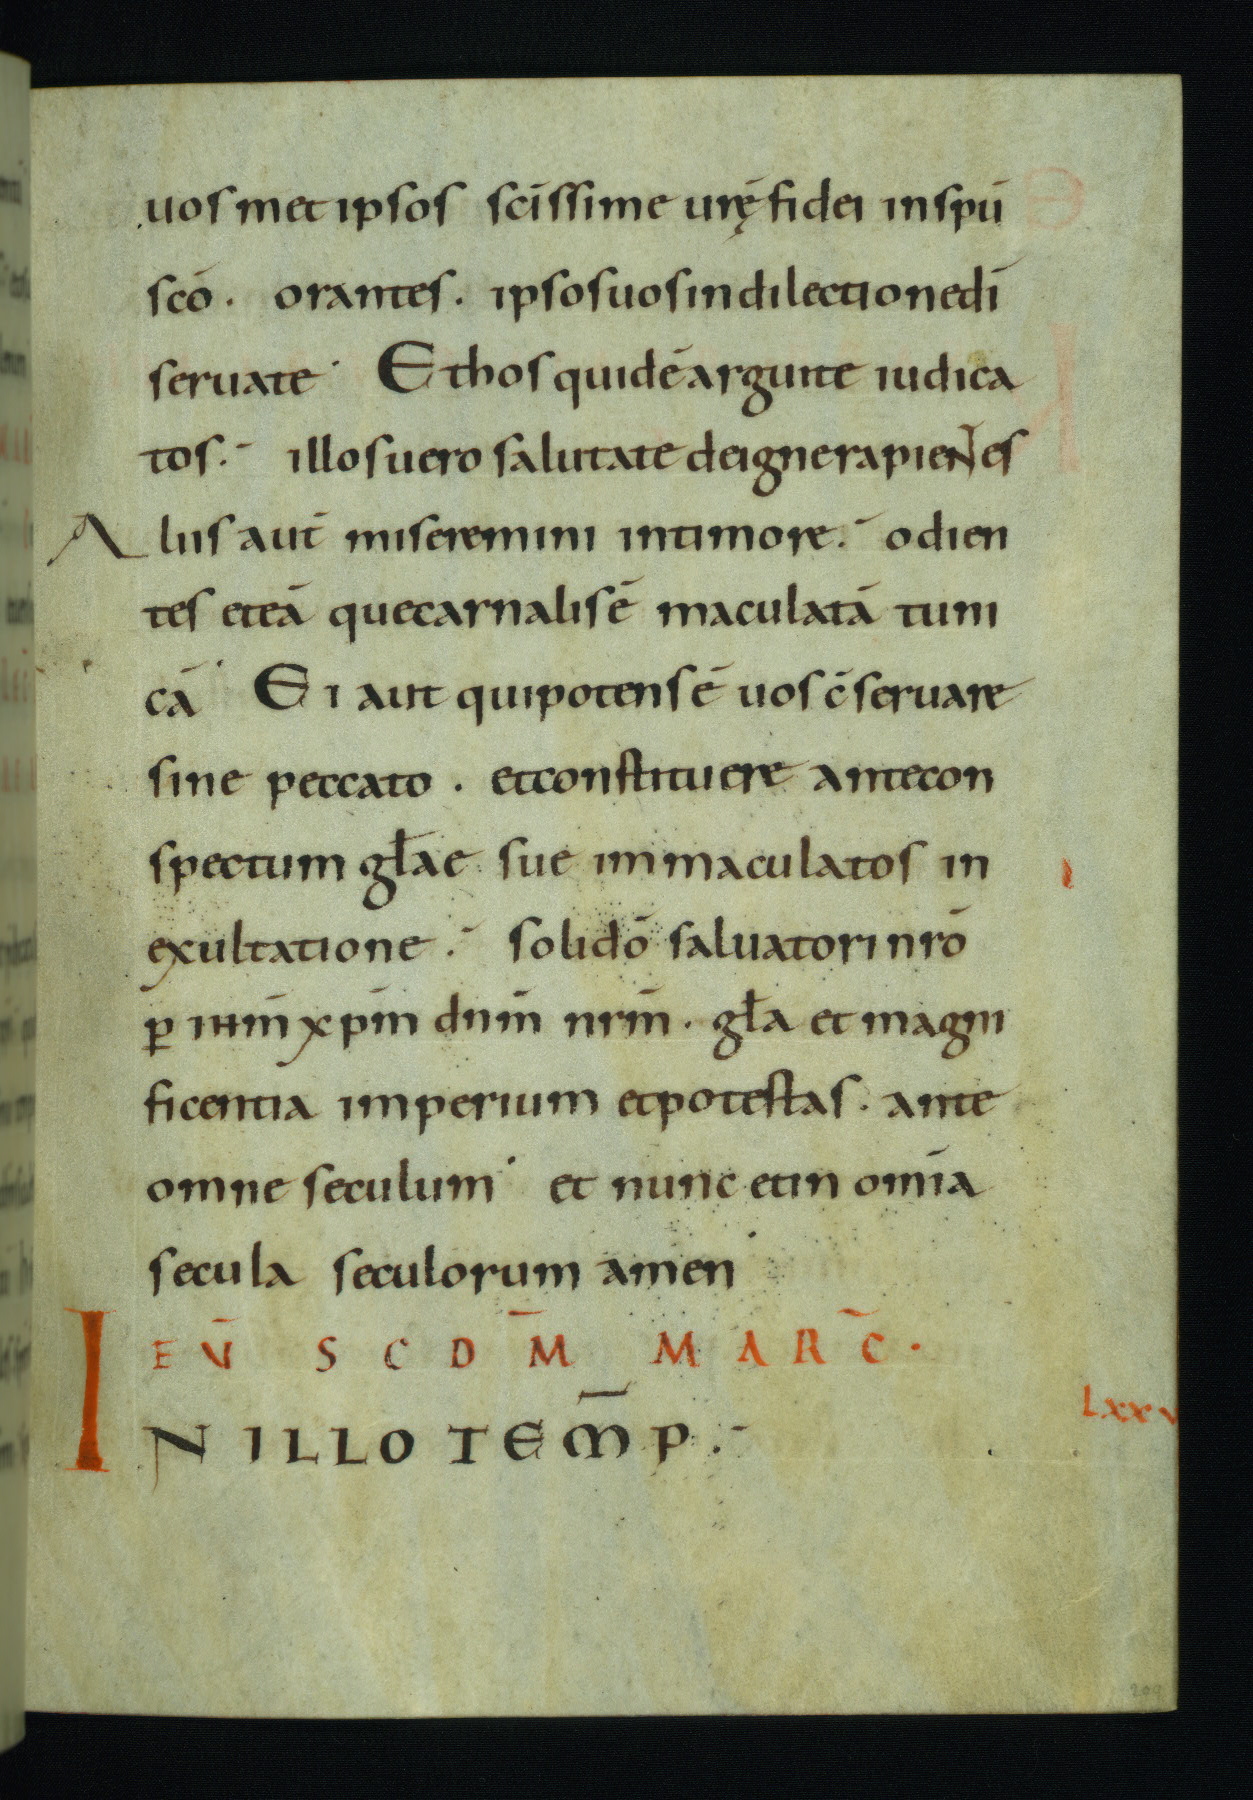 uosmetipsos scīssime urę̄ fidei inspū
scō. orantes. ipsosuosindilectionedī
seruate. Ethosquidēarguite iudica
tos. illosuero saluate deignerapientes
Aliis aut̄ miseremini intimore. odien
tes eteā quecarnalisē maculatā tuni
cā. Ei aut quipotensē uosc̄seruare
sine peccato. etconstituere antecon
spectum gl̄ae sue immaculatos in
exultatione. solidō saluatorinrō
ꝑ ihm̄ xpm̄ dnm̄ nrm̄. gl̄a et magni
ficentia imperium etpotestas. ante
omne seculum. et nunc etin om̄ia
secula seculorum amen.
EV̄ SCDM̄ MARC̄.
IN ILLO TEM̄P.
Lxxv